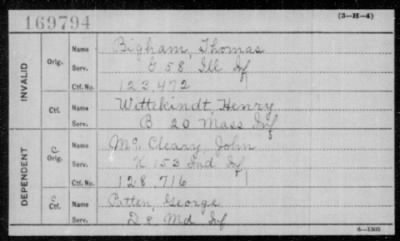 169794
(3-H-4)
INVALID
Orig.
Name Bigham, Thomas
Serv. G 58 Ill Inf
Ctf. No. 123,472
Ctf.
Name Wittekindt, Henry
Serv. B 20 Mass Inf
DEPENDENT
C. Orig.
Name Mc Cleary, John
Serv. K 153 Ind Inf
Ctf. No. 128,716
C. Ctf.
Name Potten, George
Serv. D 8 Md Inf